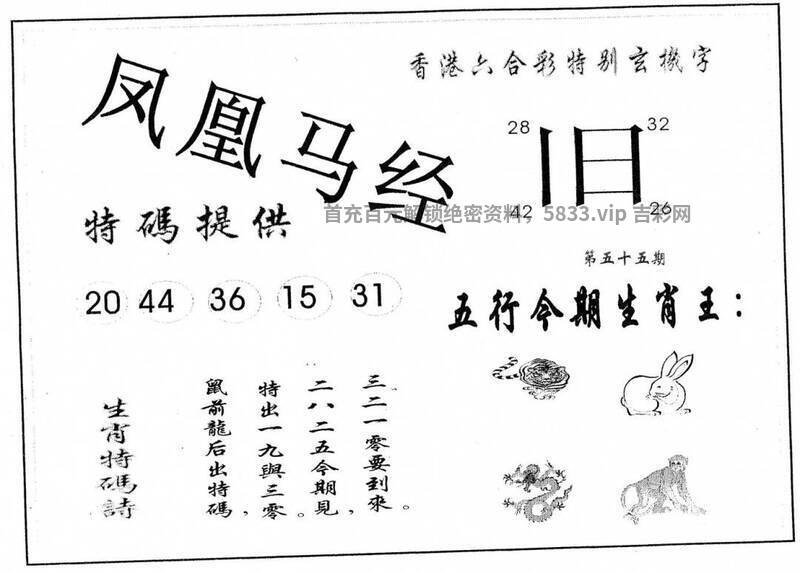 香港六合彩特别玄機字
凤凰马经
28
32
旧
42
26
首充百元解锁绝密资料，5833.vip 吉彩网
特碼提供
第五十五期
20 44 36 15 31
五行今期生肖王：
生肖特碼詩
鼠前龍后出特碼，
特出一九與三零。
二八二五今期見，
三二一零要到來。